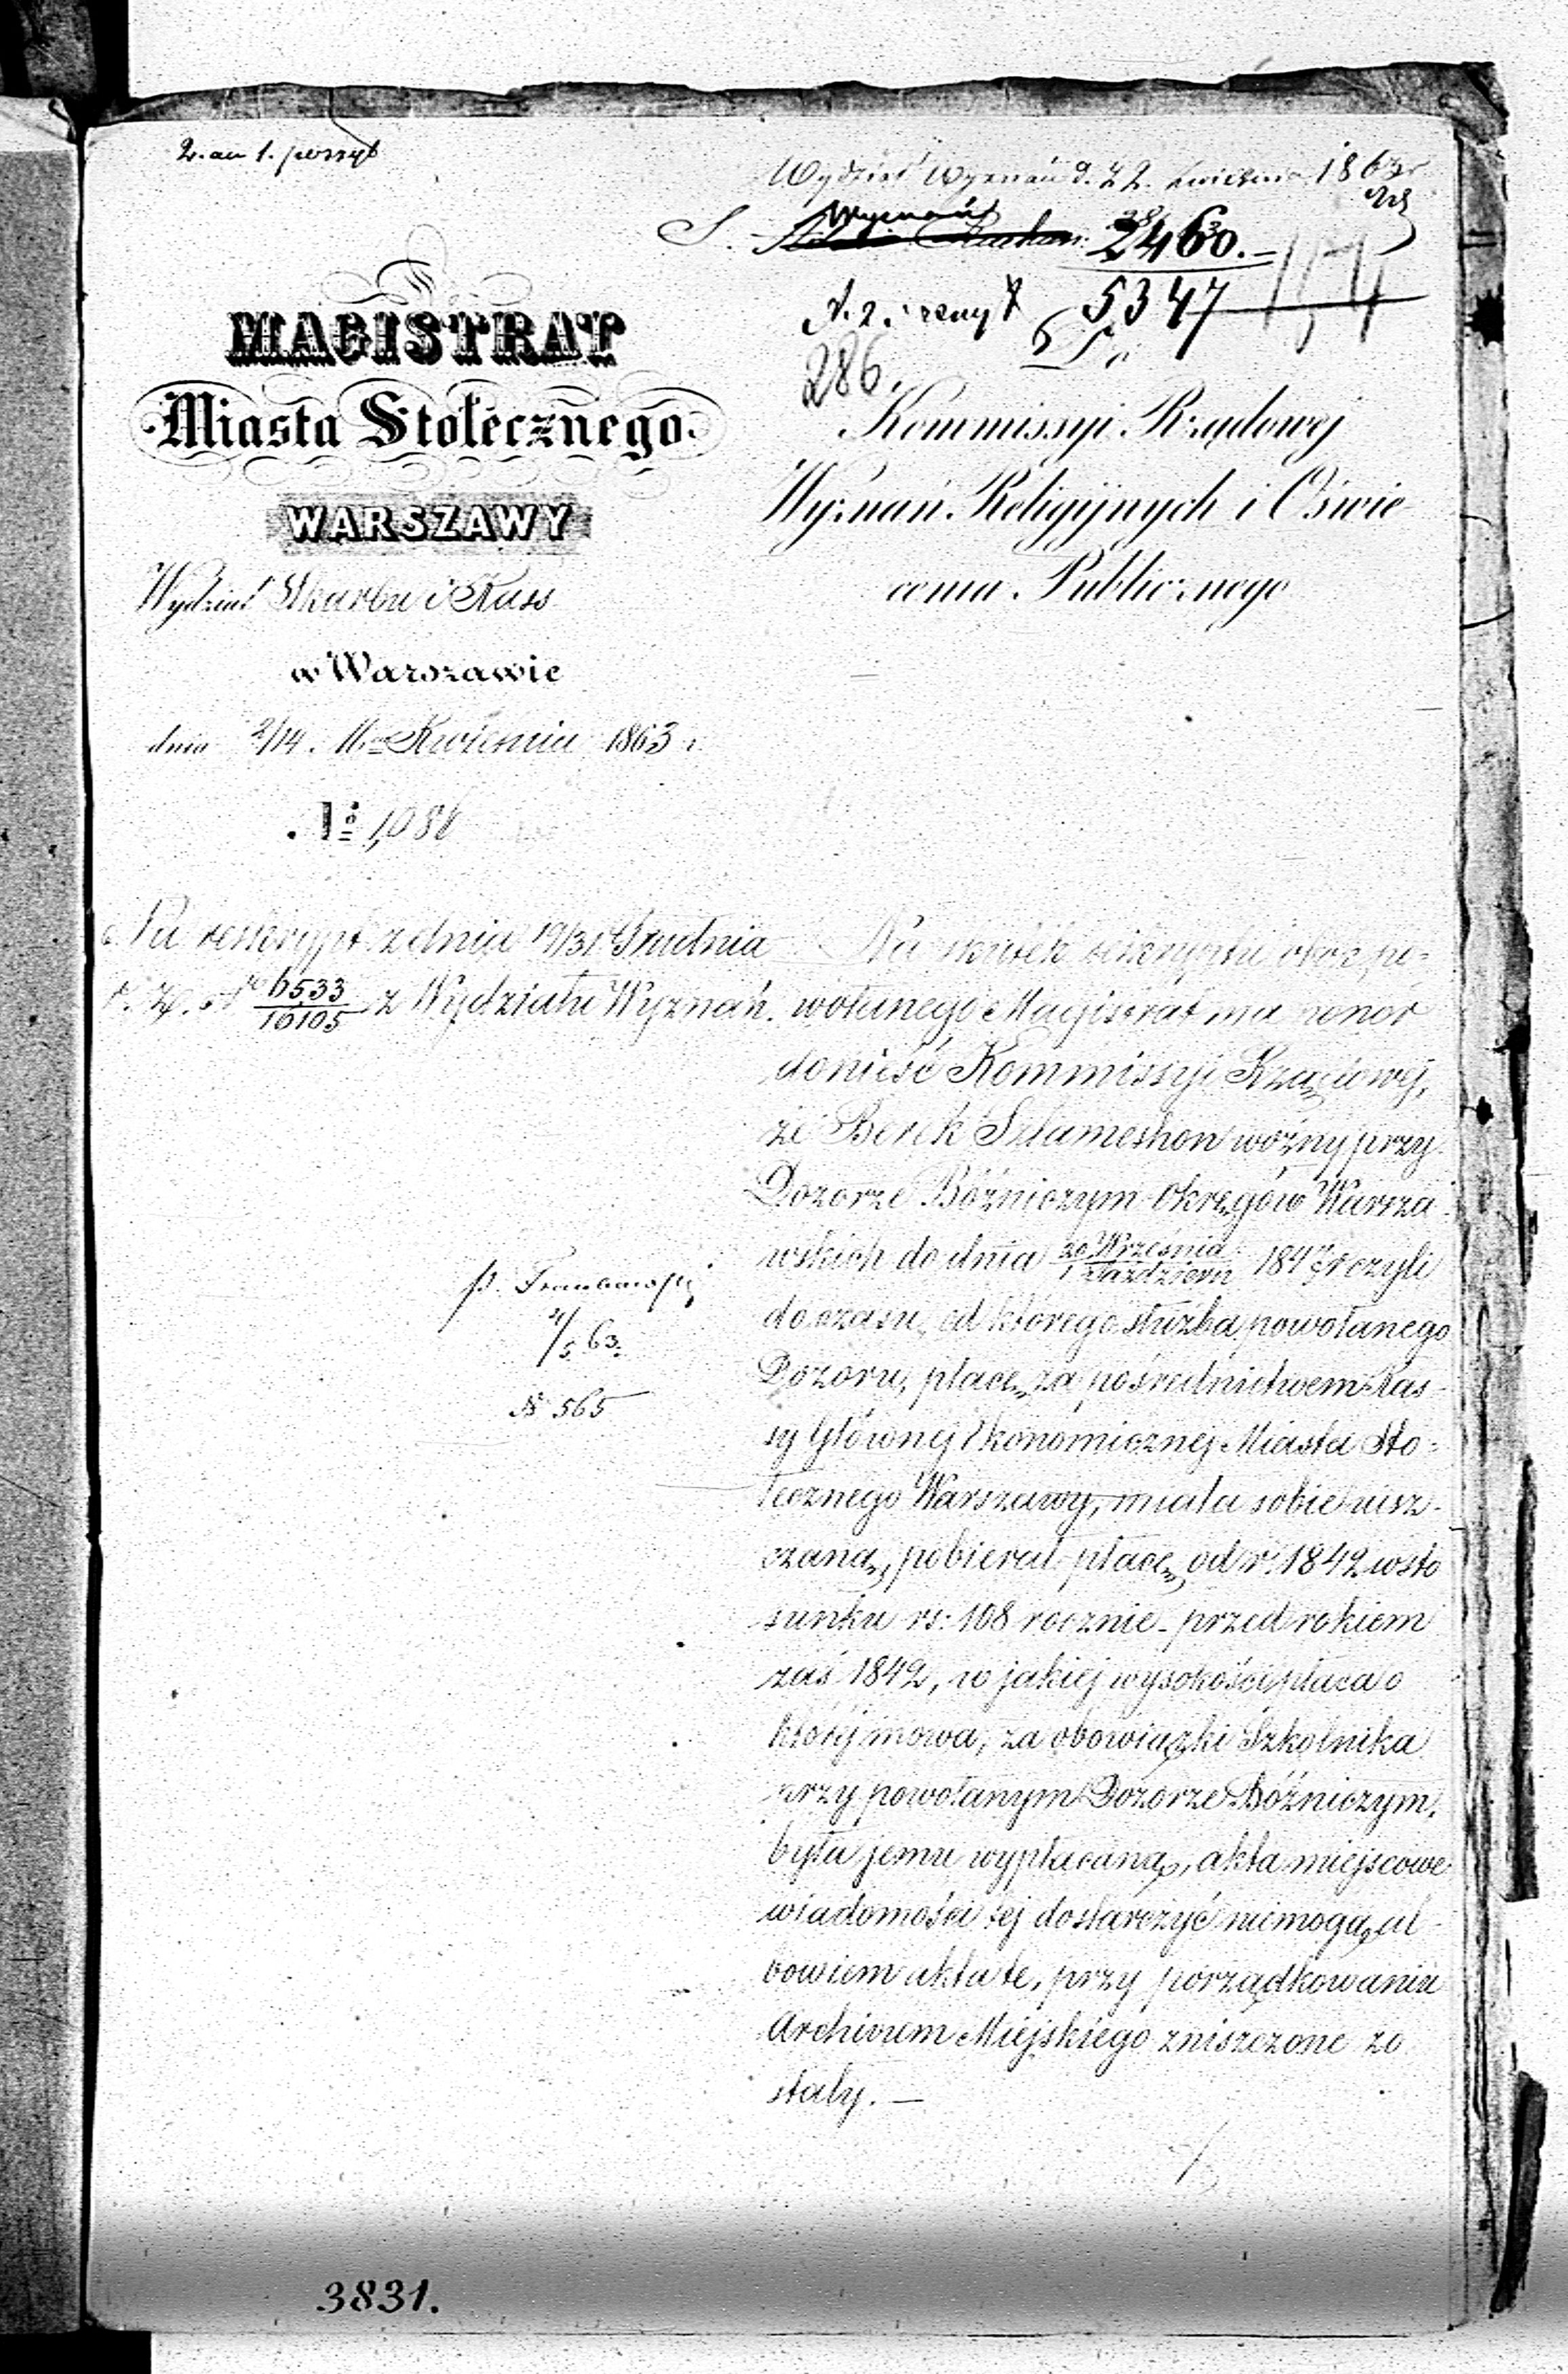 2. an 1. poszyt
Wydział Wyznań d. 22. kwietnia 1863 r
S. Wyznań 2460.
5347
286.
Do
MAGISTRAT
Miasta Stołecznego
WARSZAWY
Wydział Skarbu i Kass
w Warszawie
dnia 2/14. Mca Kwietnia 1863 r.
No 1,088
Kommissyi Rządowej
Wyznań Religijnych i Oświe
cenia Publicznego
Na reskrypt z dnia 19/31 Grudnia
r. z. No 6533/16105 z Wydziału Wyznań.
Na skutek reskryptu obok po-
wołanego Magistrat ma honor
donieść Kommissyi Rządowej,
że Berek Szlameshon woźny przy
Dozorze Bóźniczym Okręgów Warsza-
wskich do dnia 20 Września/1 Październ 1847 r czyli
do czasu, od którego służba powołanego
Dozoru, płacę za pośrednictwem Kas-
sy Głównej Ekonomicznej Miasta Sto-
łecznego Warszawy, miała sobie uisz-
czaną, pobierał płacę od r. 1842 w sto
sunku rs: 108 rocznie - przed rokiem
zaś 1842, w jakiej wysokości płaca o
której mowa, za obowiązki Szkolnika
przy powołanym Dozorze Bóźniczym,
była jemu wypłacaną, akta miejscowe
wiadomości tej dostarczyć niemogą, al-
bowiem akta te, przy porządkowaniu
Archiwum Miejskiego zniszczone zo
stały. —
4/5 63.
No 565
3831.